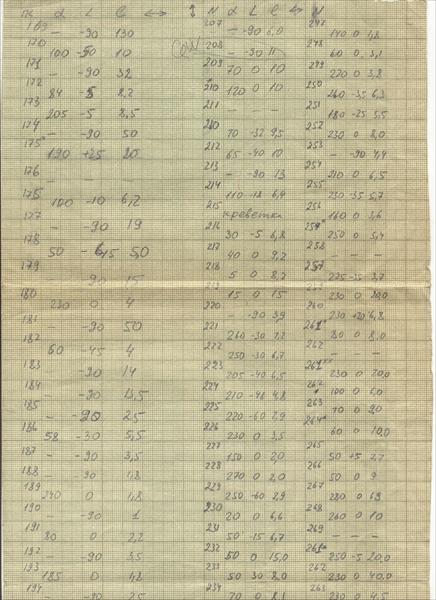 ПК α L ℓ ↔ ↕ N α L ℓ ↔ N
169 — -90 130
170 100 -50 10
171 — -90 32
172 84 -5 8,2
173 205 -5 8,5
174 — -90 50
175 190 +25 20
176 — — —
175 100 -10 6,2
177 — -90 19
178 50 -65 5,0
179 — -90 15
180 230 0 4
181 — -90 50
182 60 -45 4
183 — -90 14
184 — -90 5,5
185 — -90 25
186 58 -30 5,5
187 — -90 3,5
188 — -90 1,8
189 240 0 1,8
190 — -90 1
191 80 0 2,2
192 — -90 3,5
193 185 0 48
194 — -90 25
207 — -90 6,0
208 — -90 11
209 70 0 10
210 120 0 10
211 — — —
210 70 -32 9,5
212 65 -40 10
213 — -90 13
214 110 -18 6,4
215 креветка
216 30 -5 6,8
217 40 0 9,2
218 5 0 8,2
219 15 0 15
220 — -90 39
221 260 -30 7,2
222 250 -30 6,7
223 205 -40 6,5
224 210 -40 4,8
225 220 -60 2,9
226 230 0 3,5
227 150 0 2,0
228 270 0 2,0
229 250 -60 2,9
230 20 0 6,6
231 50 -15 6,7
232 50 0 15,0
233 50 30 8,0
234 70 0 8,1
247 140 0 1,8
248 60 0 3,1
249 220 0 3,8
250 260 -35 6,3
251 180 -25 5,5
252 230 0 8,0
253 — -90 4,4
254 210 0 6,5
255 230 -35 5,7
256 160 0 3,6
257 250 0 5,4
258 — — —
257 225 -35 3,7
259 230 0 20,0
260 230 +20 6,8
261* 80 0 8,0
262 — — —
261** 230 0 20,0
262 100 0 6,0
263 70 0 20
264* 60 0 10,0
265 50 +5 2,7
266 50 0 9
267 280 0 69
268 260 0 10
269 —
261* 250 -5 20,0
262 230 0 40,0
263 230 0 4,5